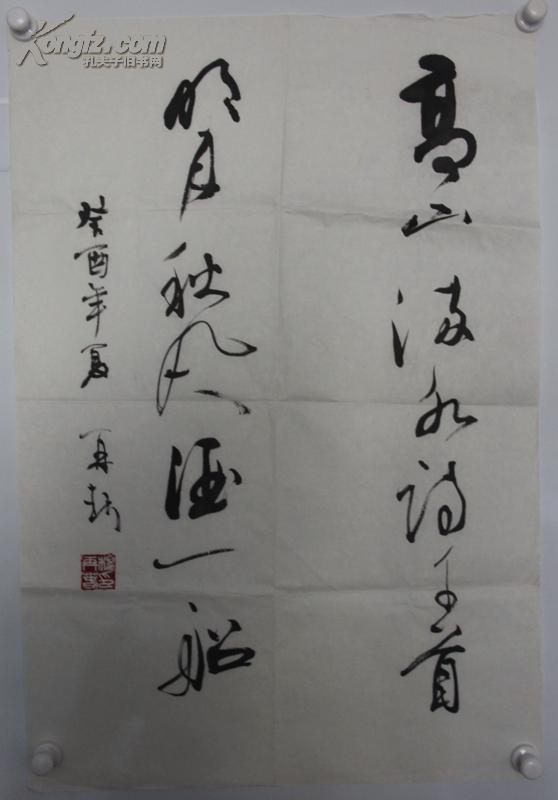 Kongfz.com
孔夫子旧书网
高山流水诗千首
明月秋风酒一船
癸酉年夏 再